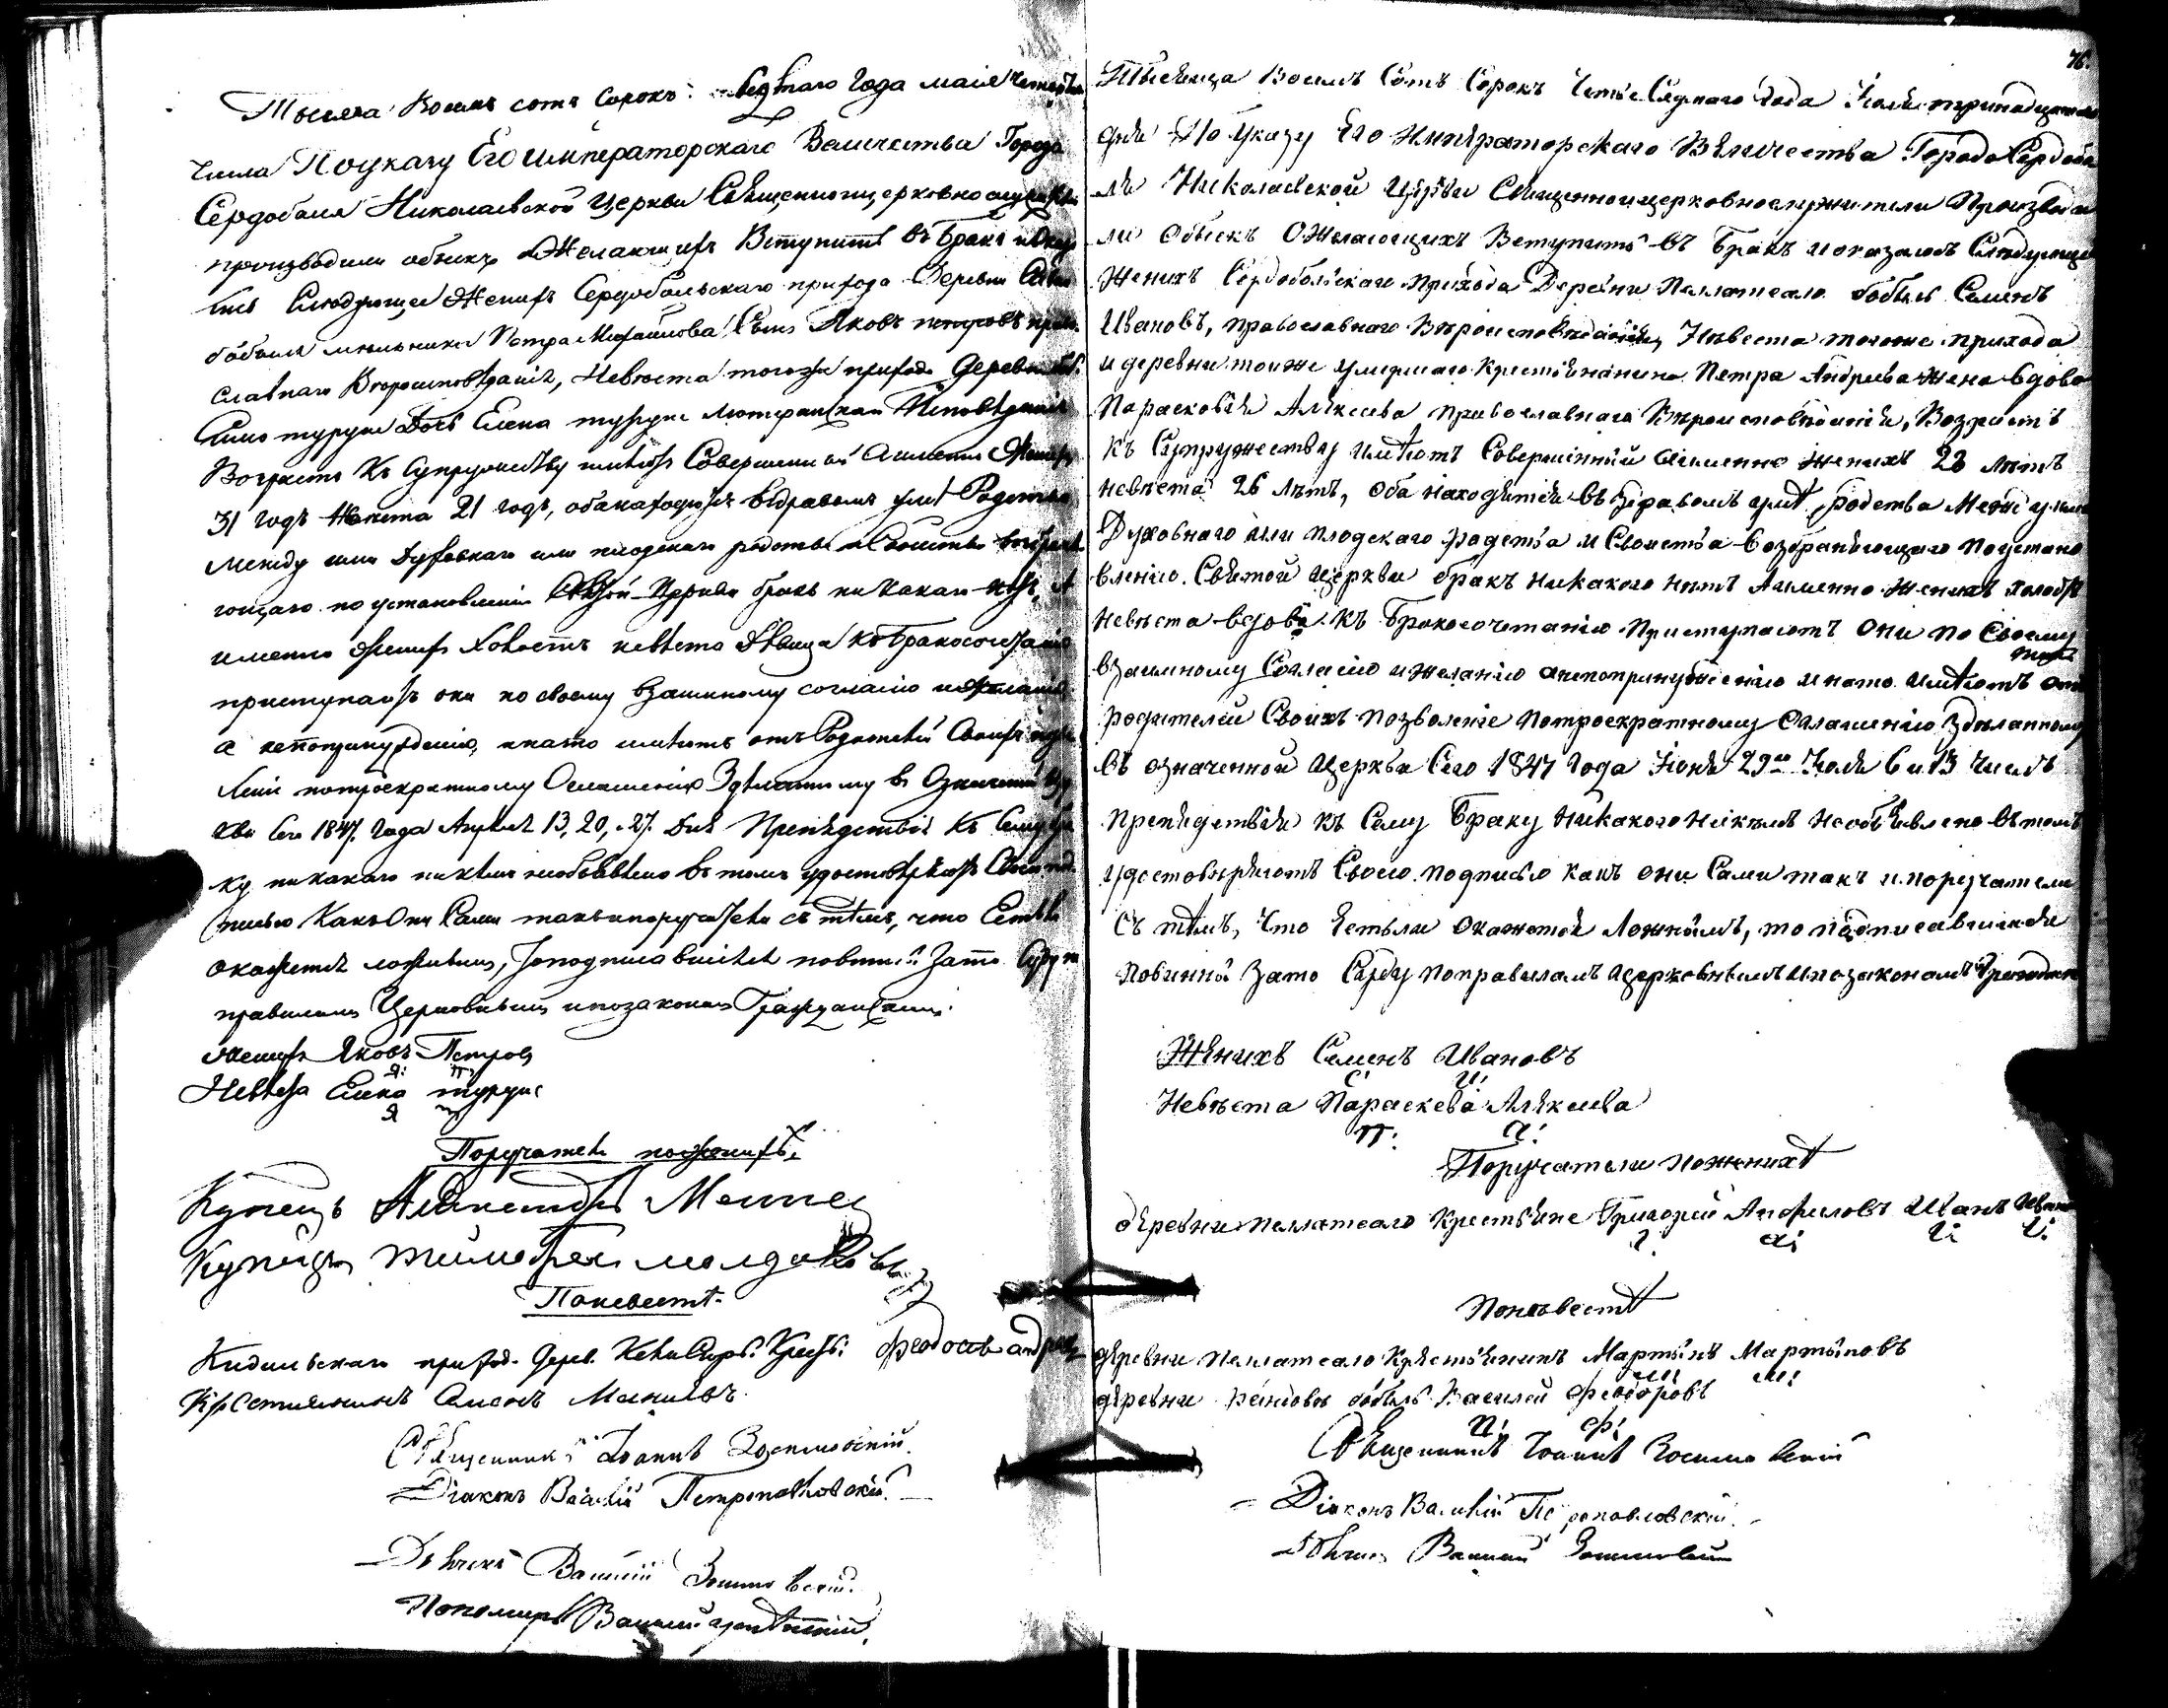 Тысяча Восемь сотъ Сорокъ Седмаго Года маія
числа Поуказу Его императорскаго Величества Города
Сердоболя Николаевской Церкви Священноицерковнослужители
производили обыскъ оЖелающихъ Вступить въ бракъ
Слюдующее Женихъ Сердобольскаго прихода Деревни
бобыля мельника Петра Михайлова Сынъ Яковъ петровъ
славнаго Вѣроисповѣданія, Невѣста тогоже прихода Деревни
турунъ Дочь Елена турунъ Лютеранскаго Исповѣданія
Возрастъ Къ Супружеству имѣютъ Совершенный Аименно Женихъ
31 годъ Невѣста 21 годъ, оба находятся въздравомъ умѣ Родства
между ими Духовнаго или плодскаго родства и Свойства
ющаго по установленію Святой Церкви бракъ никакаго нѣтъ, А
именно Женихъ Холостъ невѣста Дѣвица къ Бракосочетанію
приступаютъ они по своему взаимному согласію ижеланію
а непопринужденію, инато имѣютъ отъ Родителей Своихъ
потроекратному Оглашенію Здѣланному въ Означенной
кви Сего 1847 Года Апрѣля 13, 20, 27. Дня Препядствія Къ Сему
ку никакаго никѣмъ необъявлено въ томъ удостовѣряютъ Своею
писью Какъ Они Сами такъипоручатели съ тѣмъ, что Естьли
окажется ложнымъ, Топодписавшіеся повинны Зато Суду по
правиламъ Церковнымъ ипозаконамъ Гражданскимъ.
Женихъ Яковъ Петровъ
Я: П:
Невѣста Елена турунъ
Поручатели поженихѣ.
Купецъ Александръ
Купецъ тимофей
Поневестѣ
прихода Дерев. Крест: феодосей андрее
Крестиянинъ
Священникъ Іоаннъ Зосимовскій
Діаконъ Василій Петропавловскій.
Дьячекъ Василій Зосимовскій.
Пономарь Василій
76.
Тысяща Восемь Сотъ Сорокъ Седмаго Года Іюля тринадцатаго
дня По Указу Его Императорскаго Величества Города Сердобо
ля Николаевской Церкви Священноицерковнослужители Производи
ли Обыскъ ОЖелающихъ Вступить въ бракъ иоказалось Слюдующее
Женихъ Сердобольскаго Прихода Деревни Пеллатсало бобыль Семенъ
Ивановъ, православнаго Вѣроисповѣданія, Невеста тогоже прихода
и деревни тоиже умершаго Крестьянина Петра Андреева Жена вдова
Парасковія Алексеева православнаго Вѣроисповѣданія, Возрастъ
Къ Супружеству имѣютъ Совершенный аименно Женихъ 23 лѣтъ
невѣста 26 лѣтъ, Оба находятся въ здравомъ умѣ, родства Между ими
Духовнаго или плодскаго родства и Свойства возбраняющаго Поустано
влению Святой Церкви бракъ никакого нѣтъ Аименно Женихъ холостъ
Невѣста вдова. Къ Бракосочетанію Приступаютъ Они по Своему
взаимному Согласію ижеланію анепопринужденію инато имѣютъ отъ
родителей Своихъ позволеніе Потроекратному Оглашению Здѣланному
въ означенной Церкви Сего 1847 года Іюня 29го Іюля 6 и 13 числъ
Препядствія Къ Сему Браку Никакого Никѣмъ Необъявлено въ томъ
удостовѣряютъ Своею подписью какъ они Сами такъ и поручатели
Съ тѣмъ, что Естьли Окажется Ложнымъ, то подписавшіеся
Повинны Зато Суду Поправиламъ Церковнымъ ипозаконамъ
Женихъ Семенъ Ивановъ
С: И:
Невѣста Параскева Алексеева
П: А:
Поручатели Поженихѣ
деревни Пеллатсало Крестьяне Григорей Анфиловъ Иванъ
Г: А: И: И:
Поневѣстѣ
деревни Пеллатсало Крестьянинъ Мартынъ Мартыновъ
М: М:
деревни бобыль Василей Феодоровъ
Ф:
Священникъ Іоаннъ Зосимовскій
Діаконъ Василій Петропавловскій.
Дьячекъ Василій Зосимовскій